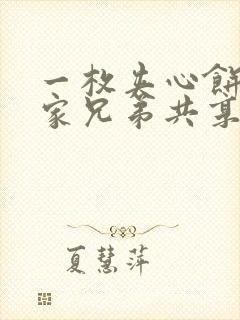 一枚夹心饼
家兄弟共享
夏慧萍